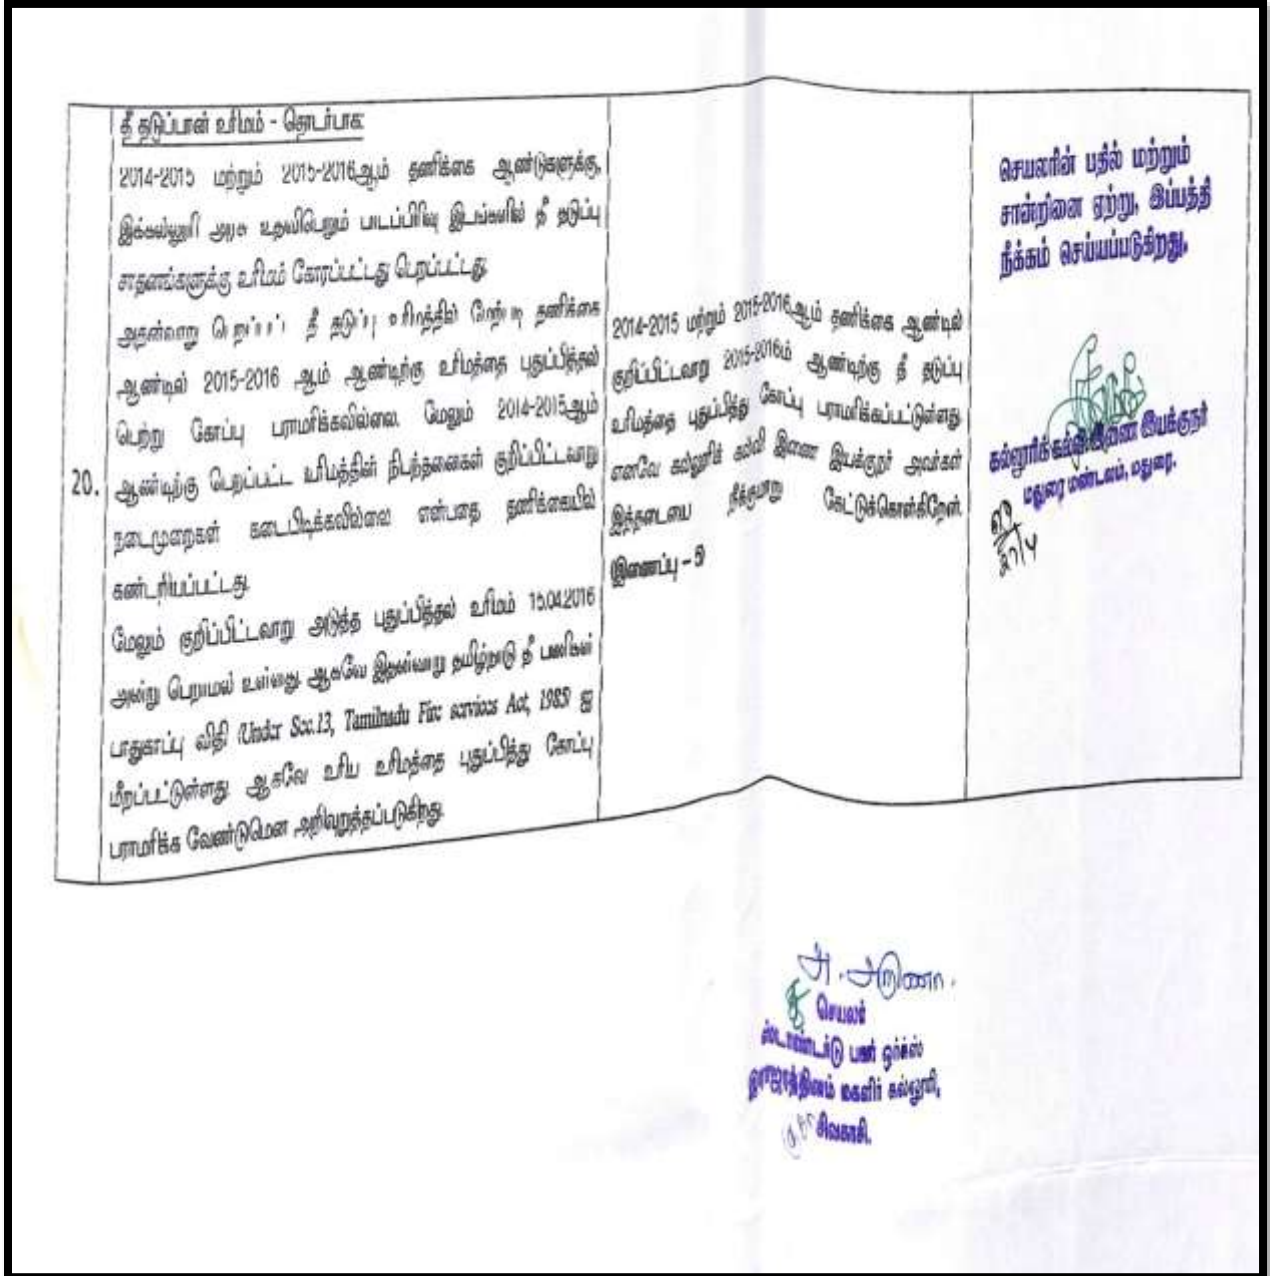 தீ தடுப்பான் உரிமம் - தொடர்பாக:
2014-2015 மற்றும் 2015-2016ஆம் தணிக்கை ஆண்டுகளுக்கு,
இக்கல்லூரி அரசு உதவிபெறும் பாடப்பிரிவு இடங்களில் தீ தடுப்பு
சாதனங்களுக்கு உரிமம் கோரப்பட்டது பெறப்பட்டது.
அதன்வாறு தீ தடுப்பு உரிமத்தில் மேற்படி தணிக்கை
ஆண்டில் 2015-2016 ஆம் ஆண்டிற்கு உரிமத்தை புதுப்பித்தல்
பெற்று கோப்பு பராமரிக்கவில்லை. மேலும் 2014-2015ஆம்
20. ஆண்டிற்கு பெறப்பட்ட உரிமத்தின் நிபந்தனைகள் குறிப்பிட்டவாறு
நடைமுறைகள் கடைபிடிக்கவில்லை என்பதை தணிக்கையில்
கண்டறியப்பட்டது.
மேலும் குறிப்பிட்டவாறு அடுத்த புதுப்பித்தல் உரிமம் 15.04.2016
அன்று பெறாமல் உள்ளது. ஆகவே இதன்வாறு தமிழ்நாடு தீ பணிகள்
பாதுகாப்பு விதி (Under Sec.13, Tamilnadu Fire services Act, 1985) ஐ
மீறப்பட்டுள்ளது. ஆகவே உரிய உரிமத்தை புதுப்பித்து கோப்பு
பராமரிக்க வேண்டுமென அறிவுறுத்தப்படுகிறது.
2014-2015 மற்றும் 2015-2016ஆம் தணிக்கை ஆண்டில்
குறிப்பிட்டவாறு 2015-2016ம் ஆண்டிற்கு தீ தடுப்பு
உரிமத்தை புதுப்பித்து கோப்பு பராமரிக்கப்பட்டுள்ளது.
எனவே கல்லூரிக் கல்வி இணை இயக்குநர் அவர்கள்
இத்தடையை நீக்குமாறு கேட்டுக்கொள்கிறேன்.
(இணைப்பு - 5)
செயலரின் பதில் மற்றும்
சான்றினை ஏற்று, இப்பத்தி
நீக்கம் செய்யப்படுகிறது.
கல்லூரிக்கல்வி இணை இயக்குநர்
மதுரை மண்டலம், மதுரை.
செயலர்
ஸ்டாண்டர்டு பயர் ஒர்க்ஸ்
இராஜரத்தினம் மகளிர் கல்லூரி,
சிவகாசி.